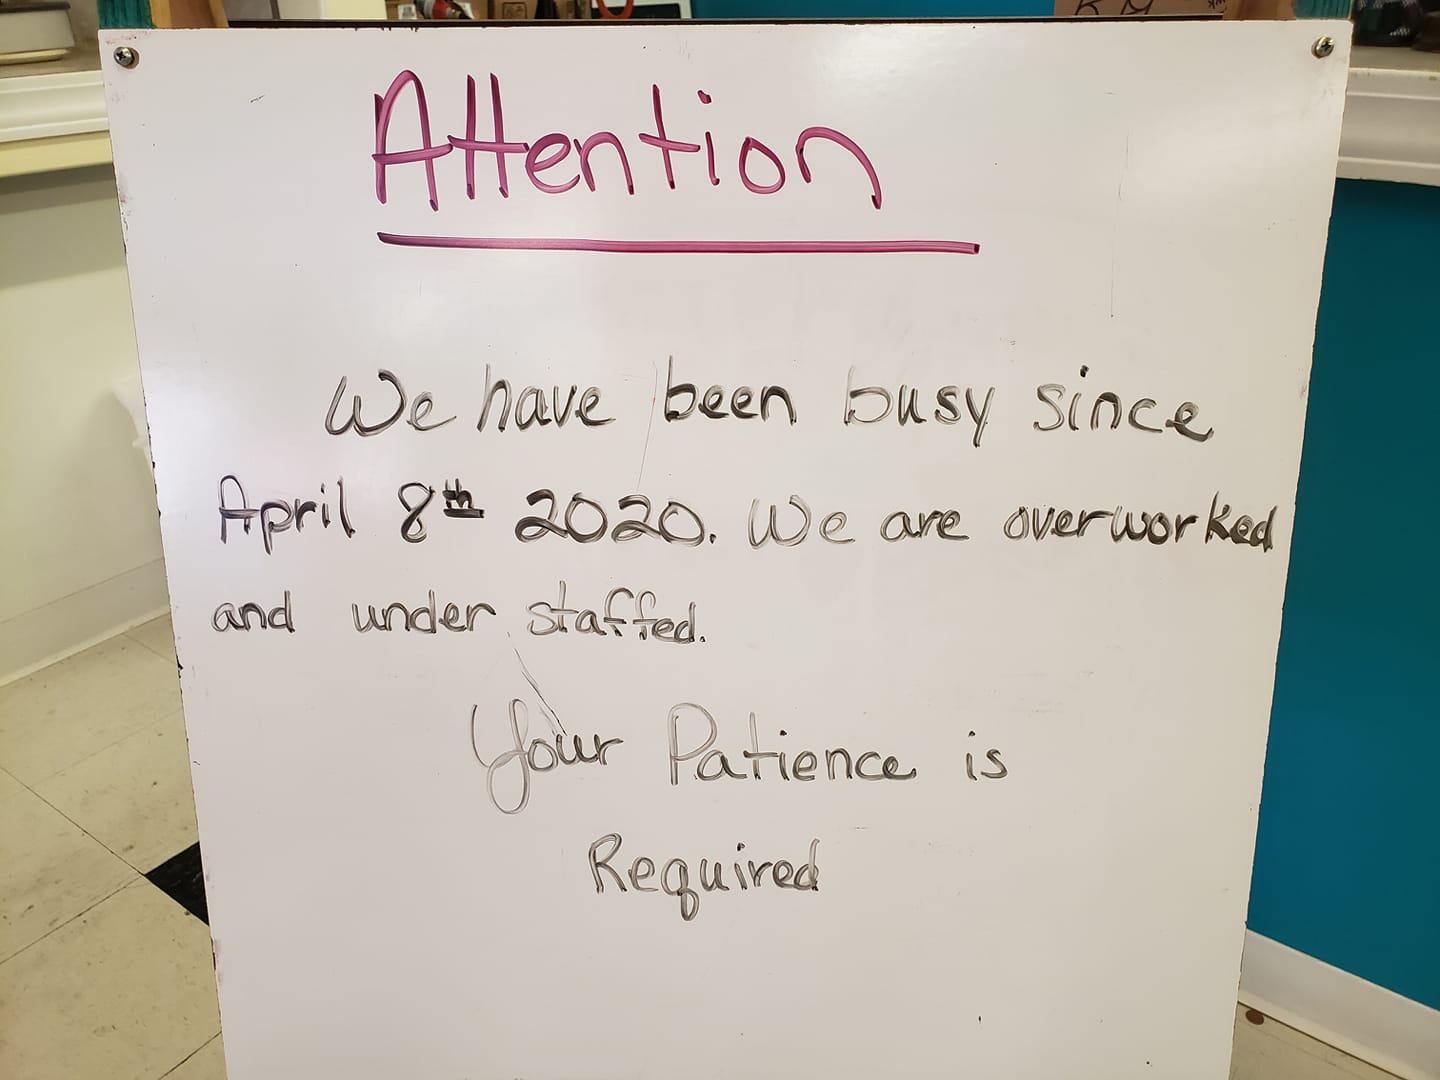 Attention
We have been busy since
April 8th 2020. We are overworked
and under staffed.
Your Patience is
Required